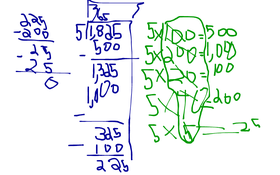 225
-200
25
- 25
0
365
5 1,825
- 500
1,325
1,000
-
325
- 100
225
5x100=500
5x200=1,000
5x20=100
5x
200
5x
25